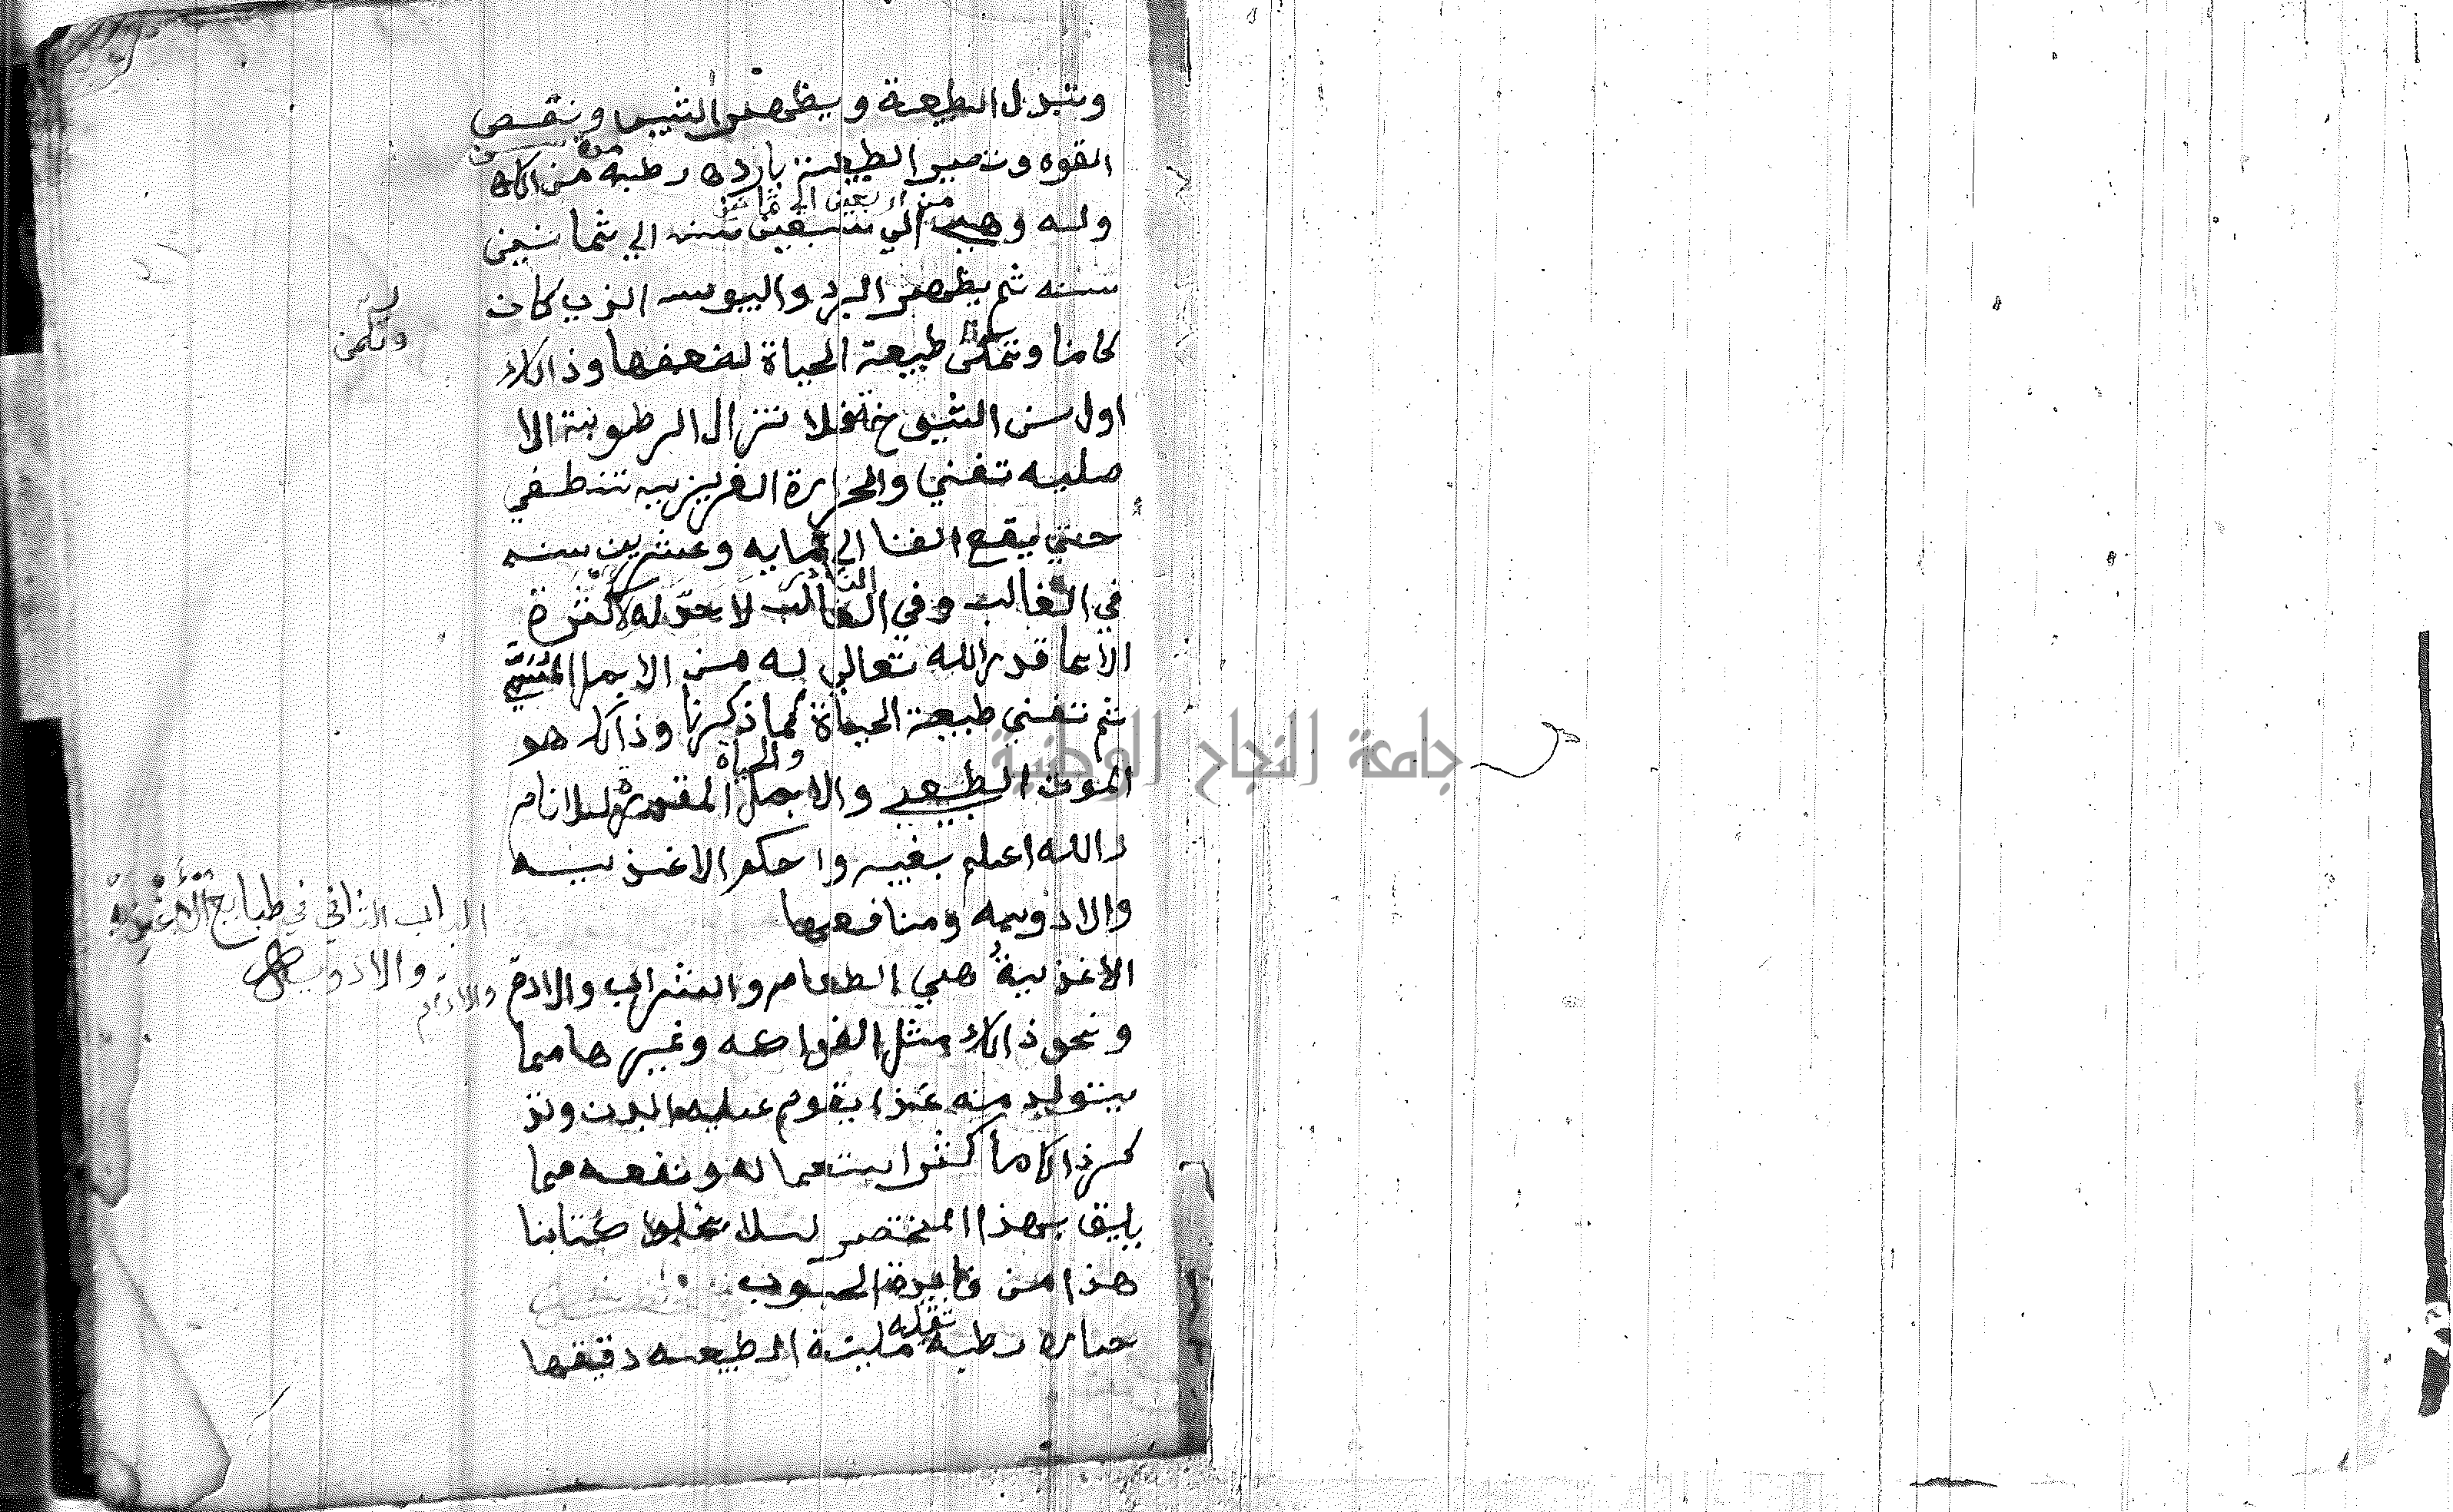 وتتبدل الطبيعة ويظهر الشيب وتنقص
القوه وتصير الطبيعة بارده رطبه من
من اربعين الى ثمانين
وله وهي الي ستين سنه الي ثمانين
سنه ثم يظهر البرد واليبوسه الذي كان
كامنا وتتمكن طبيعة الحياة لضعفها وذالك
وتكمن
اول سن الشيوخة فلا تزال الرطوبة الا
صليه تفني والحرارة الغريزيه تنطفي
حتي يقع الفنا الي مايه وعشرين سنه
في الغالب وفي النادر لا حد له لاكثرة
الا ما قدر الله تعالي له من الاجل
ثم تفني طبيعة الحياة كما ذكرنا وذالك هو
والحياة
الموت الطبيعي والاجل المقدر للانام
والله اعلم بغيبه واحكم الاغذيه
والادويه ومنافعها
الباب الثاني في طبايع الاغذية
والادويه
الاغذية هي الطعام والشراب والادم
والادام
ونحو ذالك مثل الفواكه وغيرها مما
يتولد منه غذا يقوم عليه البدن ونذ
كر ذالك ما كثر استعماله ونفعه مما
يليق بهذا المختصر لالا يخلوا كتابنا
هذا من فايدة الحبوب
حاره رطبة ملينة الطبيعه دقيقها
ثقيله
جامعة النجاح الوطنية